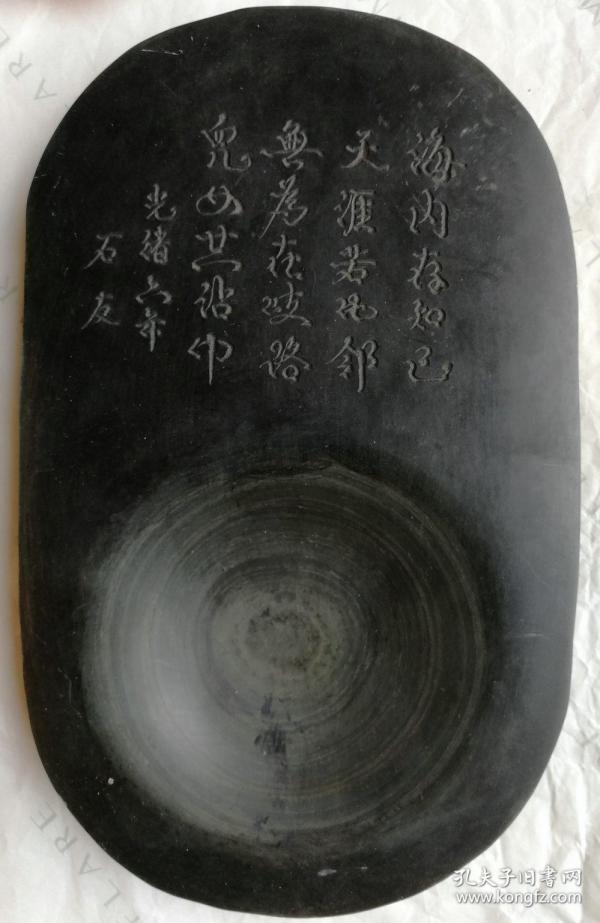 海内存知己
天涯若比邻
無為在歧路
兒女共沾巾
光緒六年
石友
孔夫子旧书网
www.kongfz.com